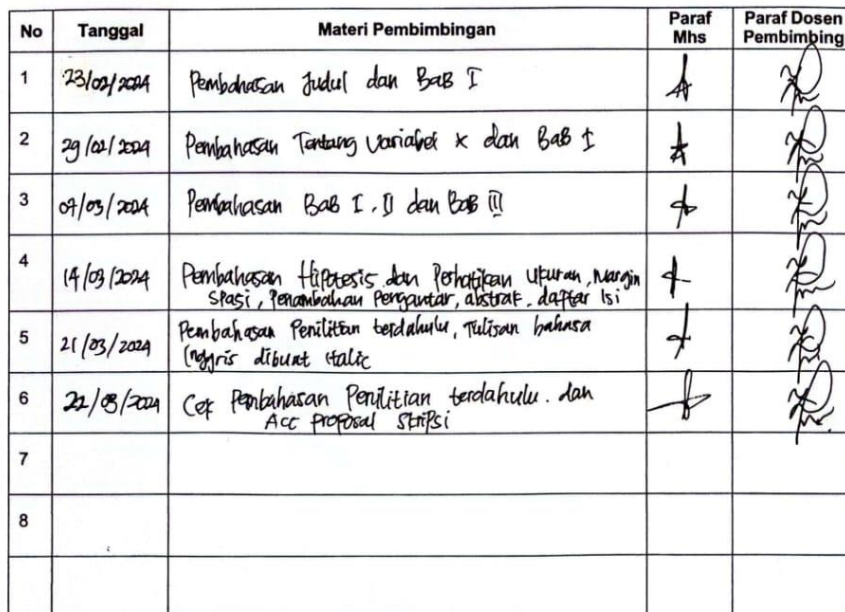 No Tanggal Materi Pembimbingan Paraf Mhs Paraf Dosen Pembimbing
1 23/02/2024 Pembahasan Judul dan Bab I
2 29/02/2024 Pembahasan Tentang Variabel X dan Bab I
3 07/03/2024 Pembahasan Bab I, II dan Bab III
4 14/03/2024 Pembahasan Hipotesis dan Perhatikan Ukuran, Margin
Spasi, Penambahan Pengantar, abstrak, daftar Isi
5 21/03/2024 Pembahasan Penilitian terdahulu, Tulisan bahasa
Inggris dibuat italic
6 22/03/2024 Cek Pembahasan Penilitian terdahulu. dan
Acc Proposal Skripsi
7
8